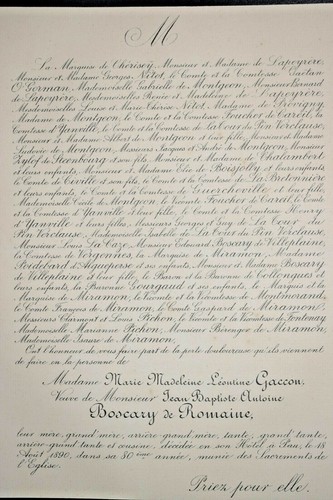 M
La Marquise de Chérisey, Monsieur et Madame de Lapeyrère,
Monsieur et Madame Georges Nétot, le Comte et la Comtesse Gaëtan
O'Gorman, Mademoiselle Gabrielle de Montgeon, Monsieur Bernard
de Lapeyrère, Mesdemoiselles Thérèse et Madeleine de Lapeyrère,
Mesdemoiselles Louise et Marie-Thérèse Nétot, Madame de Brévigny,
Madame de Montgeon, le Comte et la Comtesse Foucher de Careil, la
Comtesse d'Yanville, le Comte et la Comtesse de La Cour du Pin Verclause,
Monsieur et Madame Albert de Montgeon et leur fille, Monsieur et Madame
de Montgeon, Messieurs Jacques et André de Montgeon, Monsieur
de Reenbourg et son fils, Monsieur et Madame de Thalambert
et leurs enfants, Monsieur et Madame Elie de et leurs enfants,
le Comte de Civille et son fils, le Comte et la Comtesse de La Bretonnière
et leurs enfants, le Comte et la Comtesse de Guercheville et leur fille,
Mademoiselle Cécile de Montgeon, le Vicomte Foucher de Careil, le Comte
et la Comtesse d'Yanville et leur fille, le Comte et la Comtesse Henry
d'Yanville et leur fille, Messieurs Georges et Guy de La Cour du
Pin Verclause, Mademoiselle Isabelle de La Cour du Pin Verclause,
Monsieur Louis La Caze, Monsieur Edmond Boscary de Villeplaine,
le Comte de Vergennes, la Marquise de Miramon, Madame
Boidebard d'Aguesseau et ses enfants, Monsieur et Madame Boscary
de Villeplaine et leur fille, le Baron et la Baronne de Collongues et
leurs enfants, la Baronne Gourgaud et ses enfants, le Marquis et la
Marquise de Miramon, le Vicomte et la Vicomtesse de Montmorand,
le Comte François de Miramon, le Comte Gaspard de Miramon,
Messieurs Clarmont et Louis Pichon, le Vicomte et la Vicomtesse de Fontenay,
Mademoiselle Marianne Pichon, Monsieur Bérenger de Miramon,
Mademoiselle Isaure de Miramon,
Ont l'honneur de vous faire part de la perte douloureuse qu'ils viennent
de faire en la personne de
Madame Marie Madeleine Léontine Gaccon,
Veuve de Monsieur Jean Baptiste Antoine
Boscary de Romaine,
leur mère, grand'mère, arrière-grand'mère, tante, grand'tante,
arrière-grand'tante et cousine, décédée en son Hôtel à Pau, le 18
Août 1890, dans sa 80ème année, munie des Sacrements de
l'Église.
Priez pour elle.